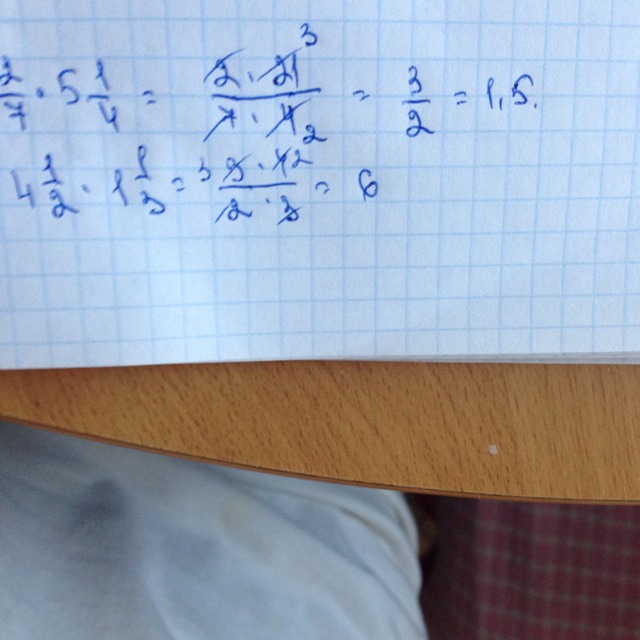 2/7 · 5 1/4 = 2 · 21 3 / 7 · 4 2 = 3/2 = 1,5.
4 1/2 · 1 1/3 = 3 9 · 4 2 / 2 · 3 = 6